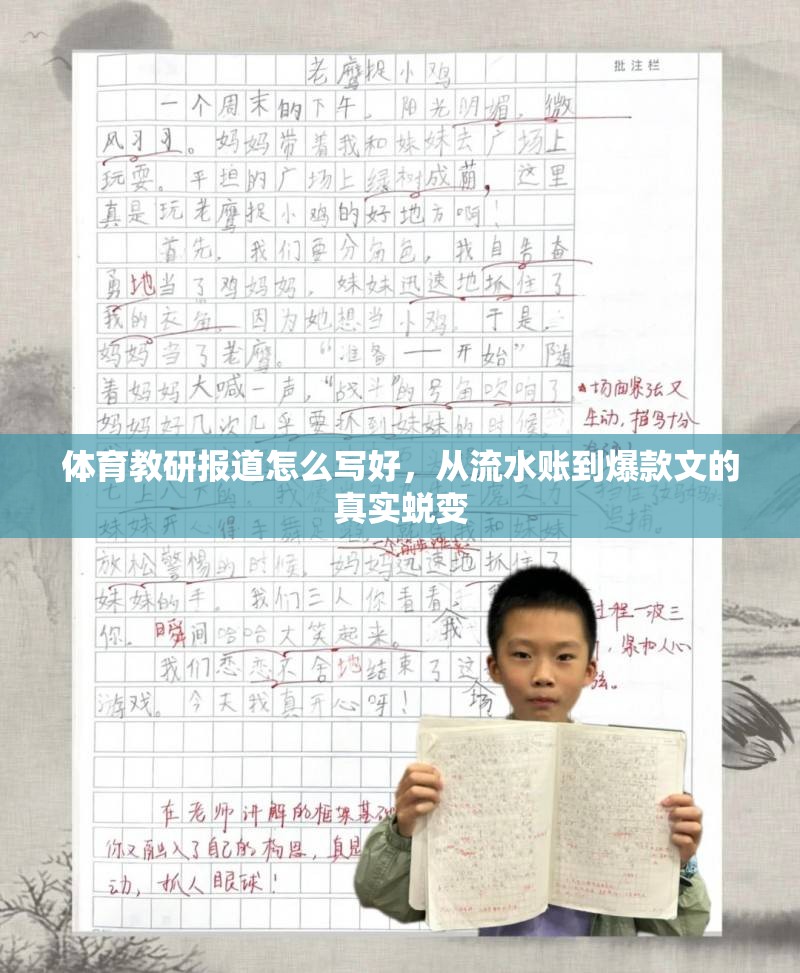 老鹰捉小鸡
批注栏
一个周末的下午，阳光明媚，微
风习习。妈妈带着我和妹妹去广场上
玩耍。平坦的广场上绿树成荫，这里
真是玩老鹰捉小鸡的好地方啊！
首先，我们要分角色，我自告奋
勇地当了鸡妈妈，妹妹迅速地抓住了
我的衣角，因为她想当小鸡，于是，
妈妈当了老鹰。“准备——开始”随
着妈妈大喊一声，“战斗”的号角吹响了
场面紧张又
生动，描写十分
妈妈好几次几乎要抓到妹妹的时候
体育教研报道怎么写好，从流水账到爆款文的
真实蜕变
追捕。
妹妹开心得手舞足 我和妹妹
放松警惕的时候，妈妈迅速地抓住了
妹妹的手。我们三人你看看我
你，瞬间哈哈大笑起来。
过程一波三
紧扣人心
弦。
我们恋恋不舍地结束了这场
游戏。今天我真开心呀！
在老师讲解的框架基础
你又融入了自己的构思，真是
动，抓人眼球！